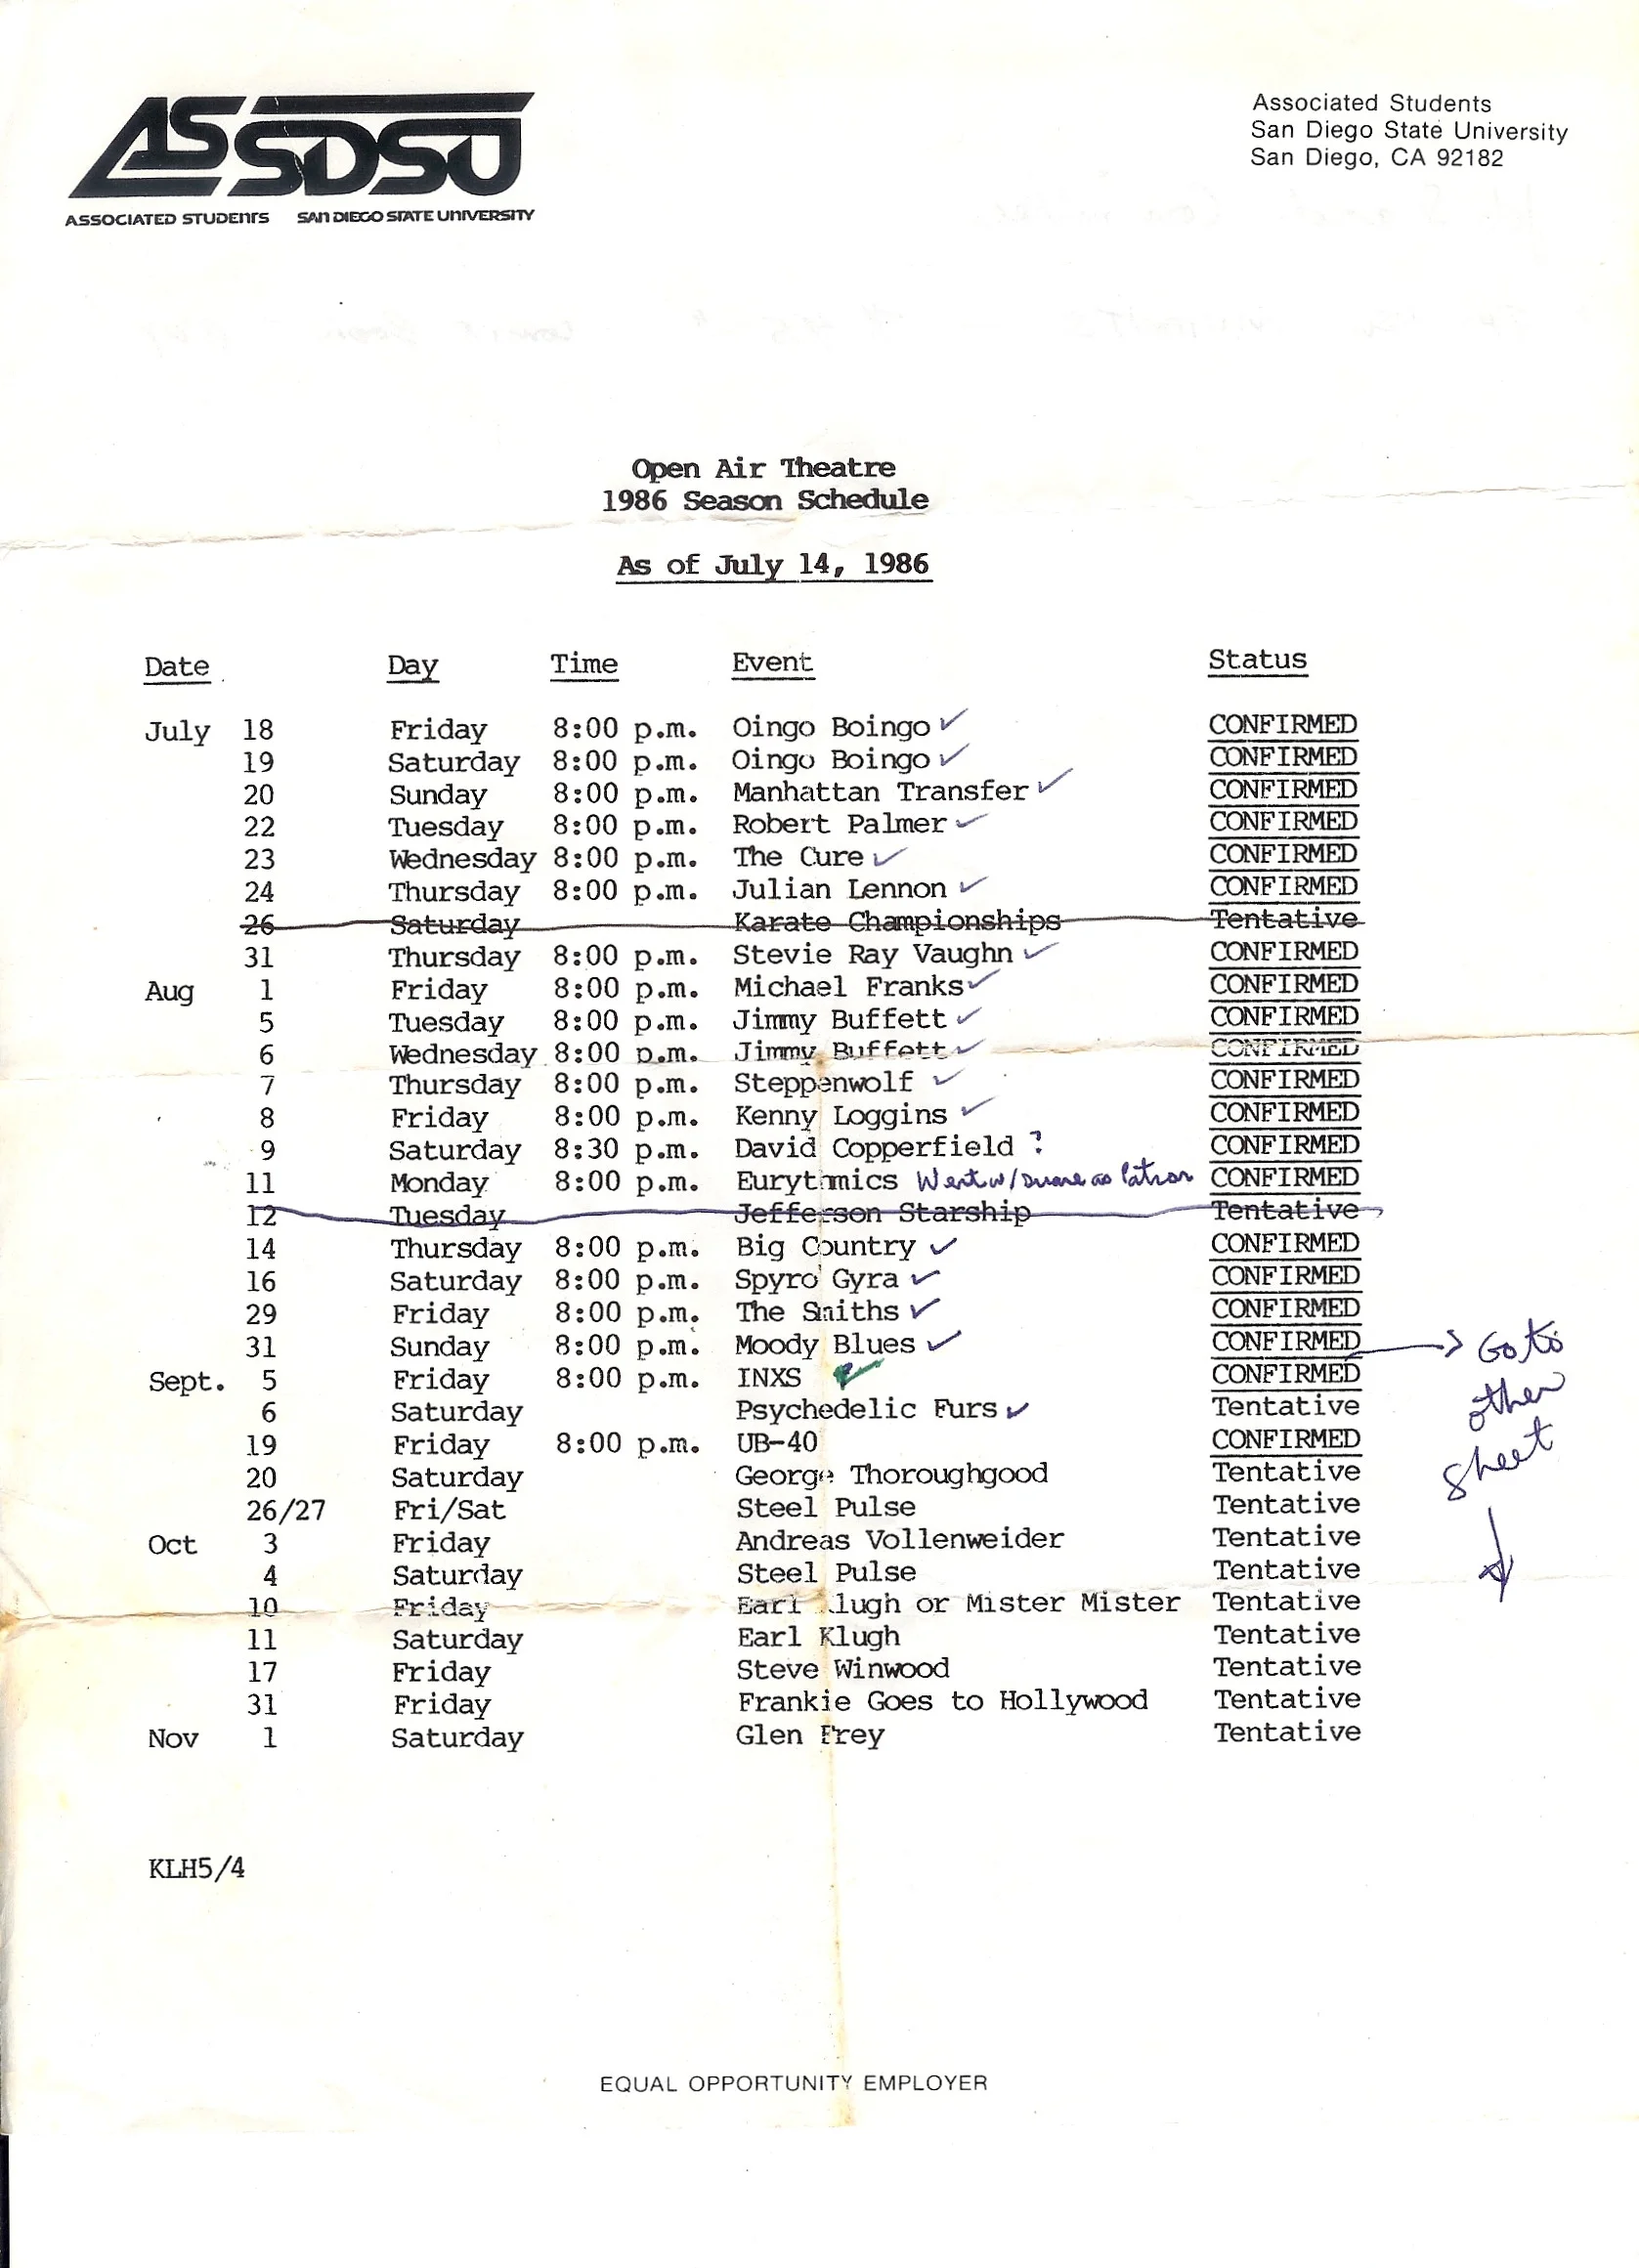 AS SDSU
ASSOCIATED STUDENTS SAN DIEGO STATE UNIVERSITY
Associated Students
San Diego State University
San Diego, CA 92182
Open Air Theatre
1986 Season Schedule
As of July 14, 1986
Date Day Time Event Status
July 18 Friday 8:00 p.m. Oingo Boingo ✓ CONFIRMED
19 Saturday 8:00 p.m. Oingo Boingo ✓ CONFIRMED
20 Sunday 8:00 p.m. Manhattan Transfer ✓ CONFIRMED
22 Tuesday 8:00 p.m. Robert Palmer ✓ CONFIRMED
23 Wednesday 8:00 p.m. The Cure ✓ CONFIRMED
24 Thursday 8:00 p.m. Julian Lennon ✓ CONFIRMED
26 Saturday Karate Championships Tentative
31 Thursday 8:00 p.m. Stevie Ray Vaughn ✓ CONFIRMED
Aug 1 Friday 8:00 p.m. Michael Franks ✓ CONFIRMED
5 Tuesday 8:00 p.m. Jimmy Buffett ✓ CONFIRMED
6 Wednesday 8:00 p.m. Jimmy Buffett ✓ CONFIRMED
7 Thursday 8:00 p.m. Steppenwolf ✓ CONFIRMED
8 Friday 8:00 p.m. Kenny Loggins ✓ CONFIRMED
9 Saturday 8:30 p.m. David Copperfield ? CONFIRMED
11 Monday 8:00 p.m. Eurythmics Went w/ Duane as Patron CONFIRMED
12 Tuesday Jefferson Starship Tentative
14 Thursday 8:00 p.m. Big Country ✓ CONFIRMED
16 Saturday 8:00 p.m. Spyro Gyra ✓ CONFIRMED
29 Friday 8:00 p.m. The Smiths ✓ CONFIRMED
31 Sunday 8:00 p.m. Moody Blues ✓ CONFIRMED → Go to
Sept. 5 Friday 8:00 p.m. INXS ✓ CONFIRMED
other
6 Saturday Psychedelic Furs ✓ Tentative
19 Friday 8:00 p.m. UB-40 CONFIRMED
sheet
20 Saturday George Thoroughgood Tentative
26/27 Fri/Sat Steel Pulse Tentative
Oct 3 Friday Andreas Vollenweider Tentative
4 Saturday Steel Pulse Tentative
10 Friday Earl Klugh or Mister Mister Tentative
11 Saturday Earl Klugh Tentative
17 Friday Steve Winwood Tentative
31 Friday Frankie Goes to Hollywood Tentative
Nov 1 Saturday Glen Frey Tentative
KLH5/4
EQUAL OPPORTUNITY EMPLOYER